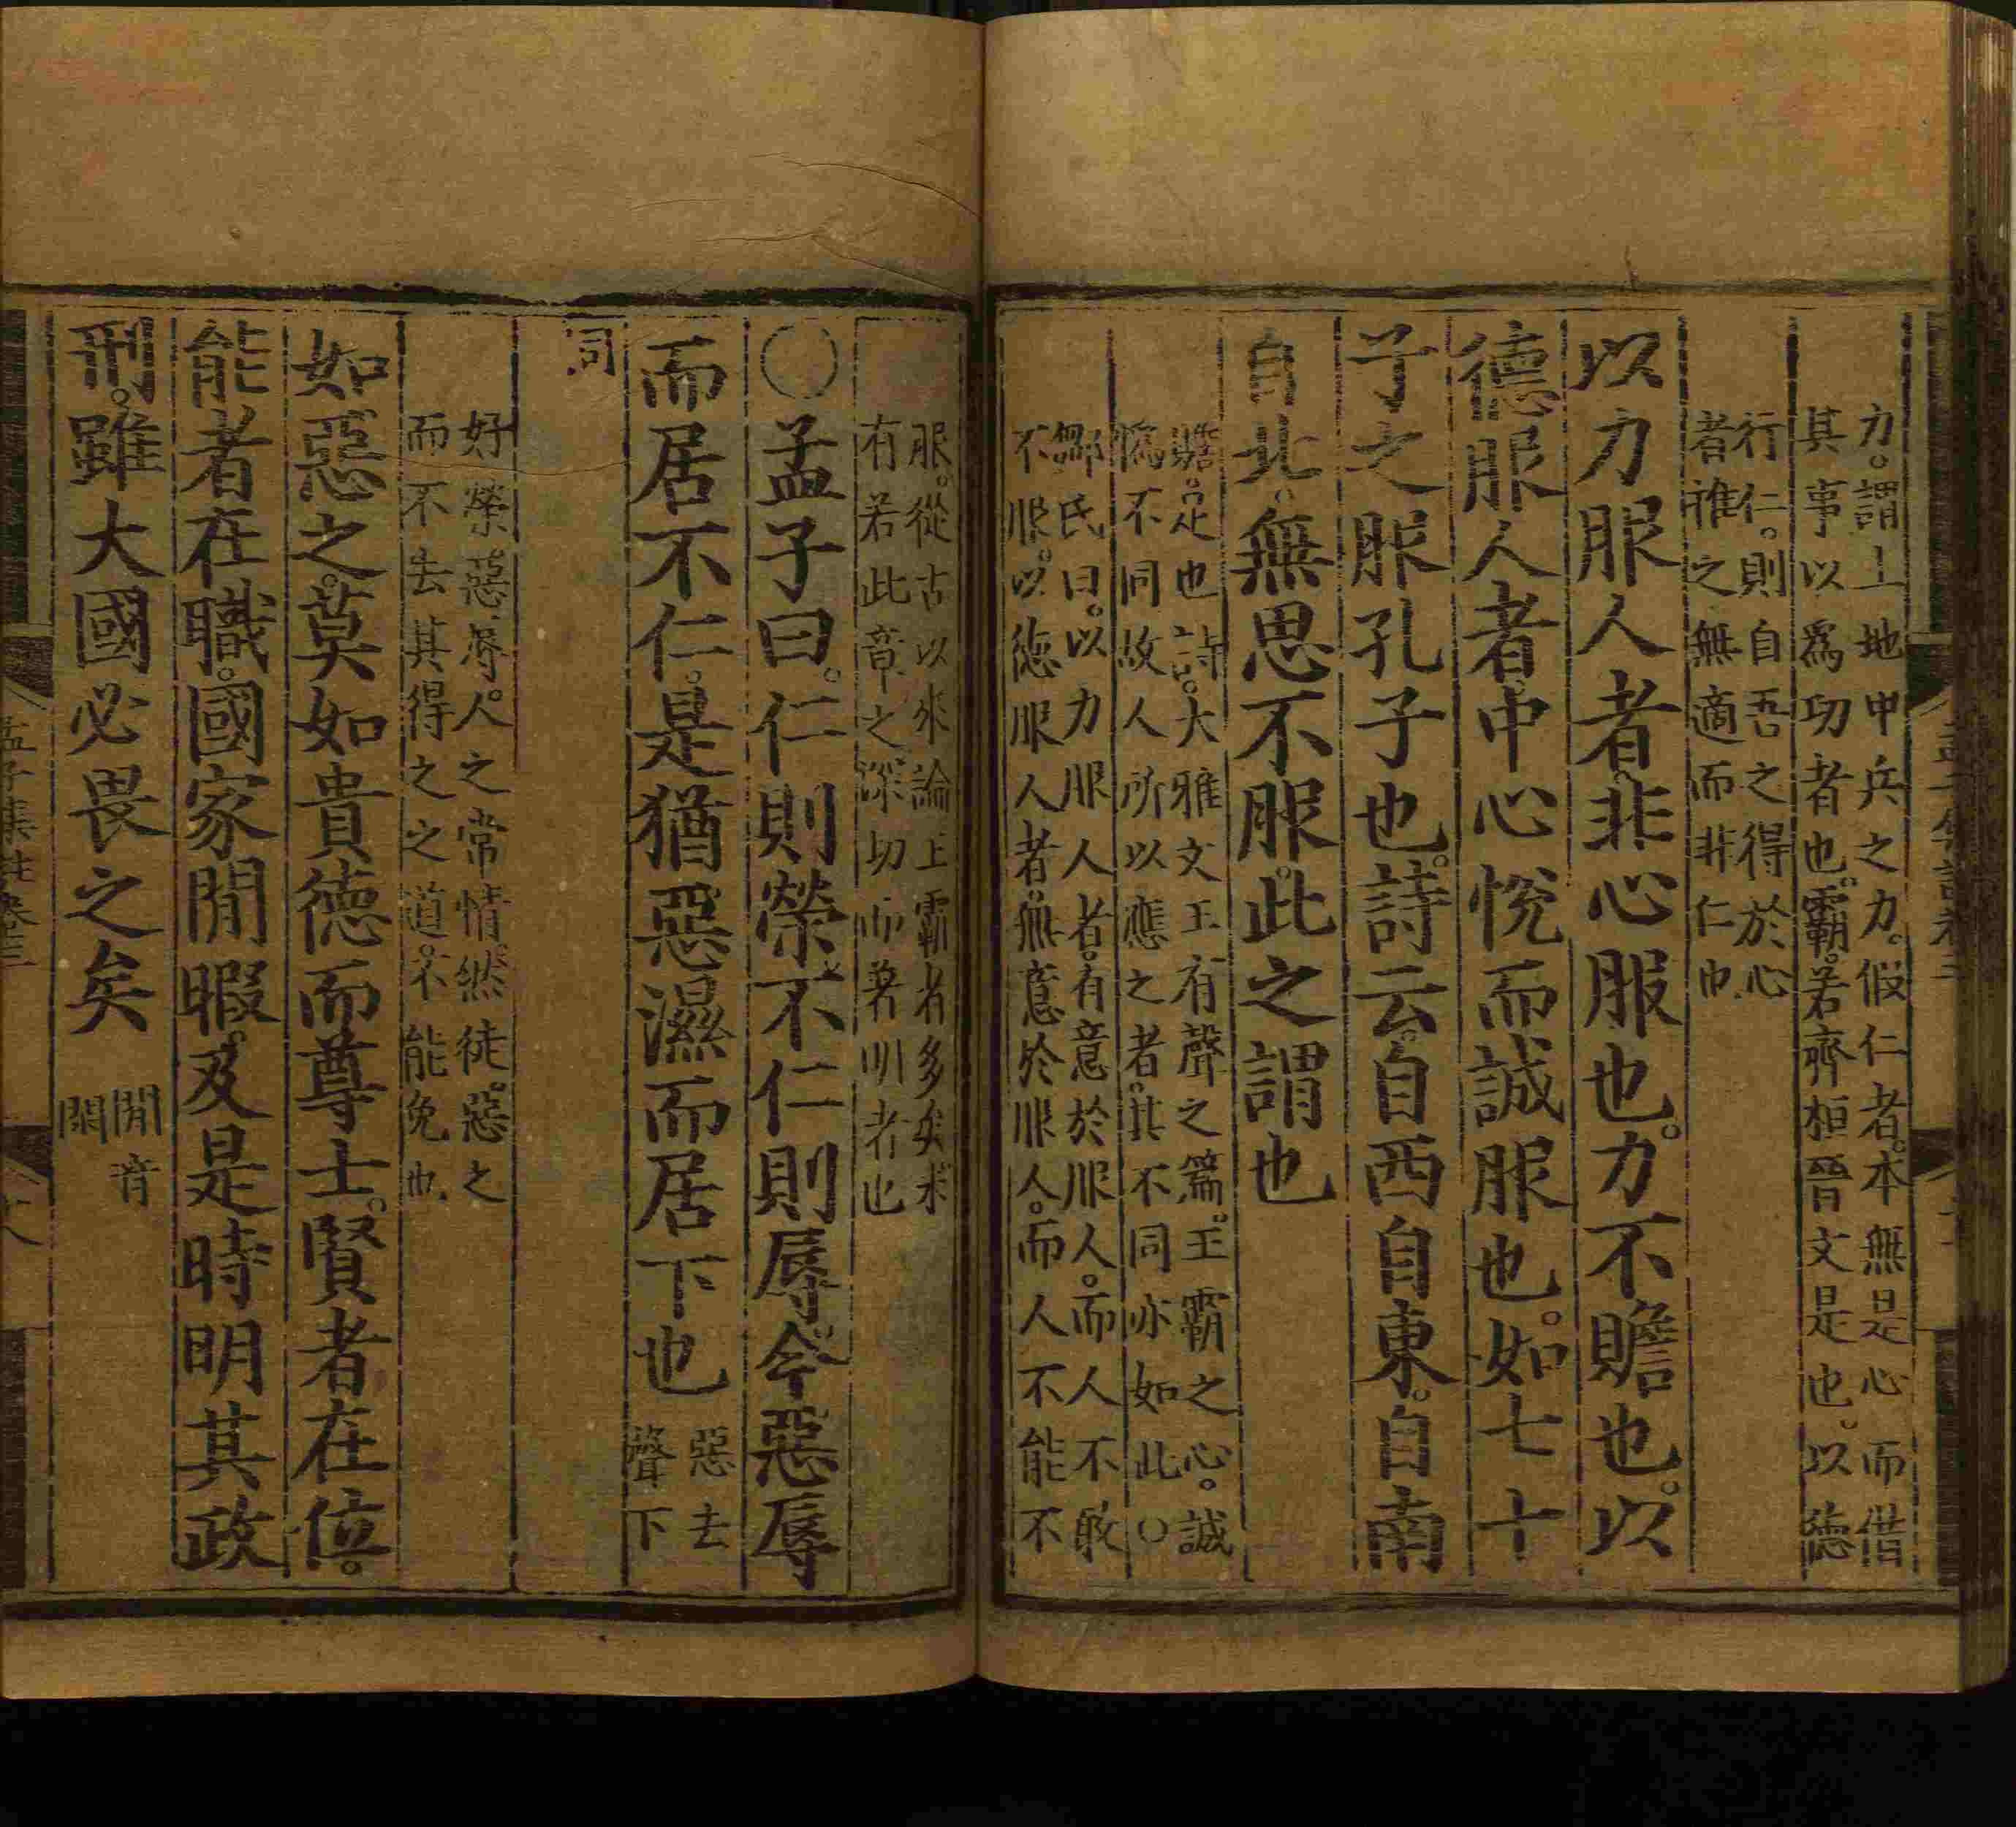 力。謂土地甲兵之力。假仁者。本無是心而借
其事以爲功者也。霸。若齊桓晉文是也。以德
行仁。則自吾之得於心
者推之無適而非仁也。
以力服人者。非心服也。力不贍也。以
德服人者。中心悅而誠服也。如七十
子之服孔子也。詩云。自西自東。自南
自北。無思不服。此之謂也
贍。足也詩。大雅文王有聲之篇。王霸之心。誠
僞不同故人所以應之者。其不同亦如此○
鄒氏曰。以力服人者。有意於服人。而人不敢
不服。以德服人者。無意於服人。而人不能不
服。從古以來論王霸者多矣未
有若此章之深切而著明者也
○孟子曰。仁則榮。不仁則辱。今惡辱
而居不仁。是猶惡濕而居下也
惡去
聲下
同
好榮惡辱。人之常情。然徒惡之
而不去其得之之道。不能免也
如惡之。莫如貴德而尊士。賢者在位。
能者在職。國家閒暇。及是時明其政
刑。雖大國必畏之矣
閒音
閑
孟子集註卷三